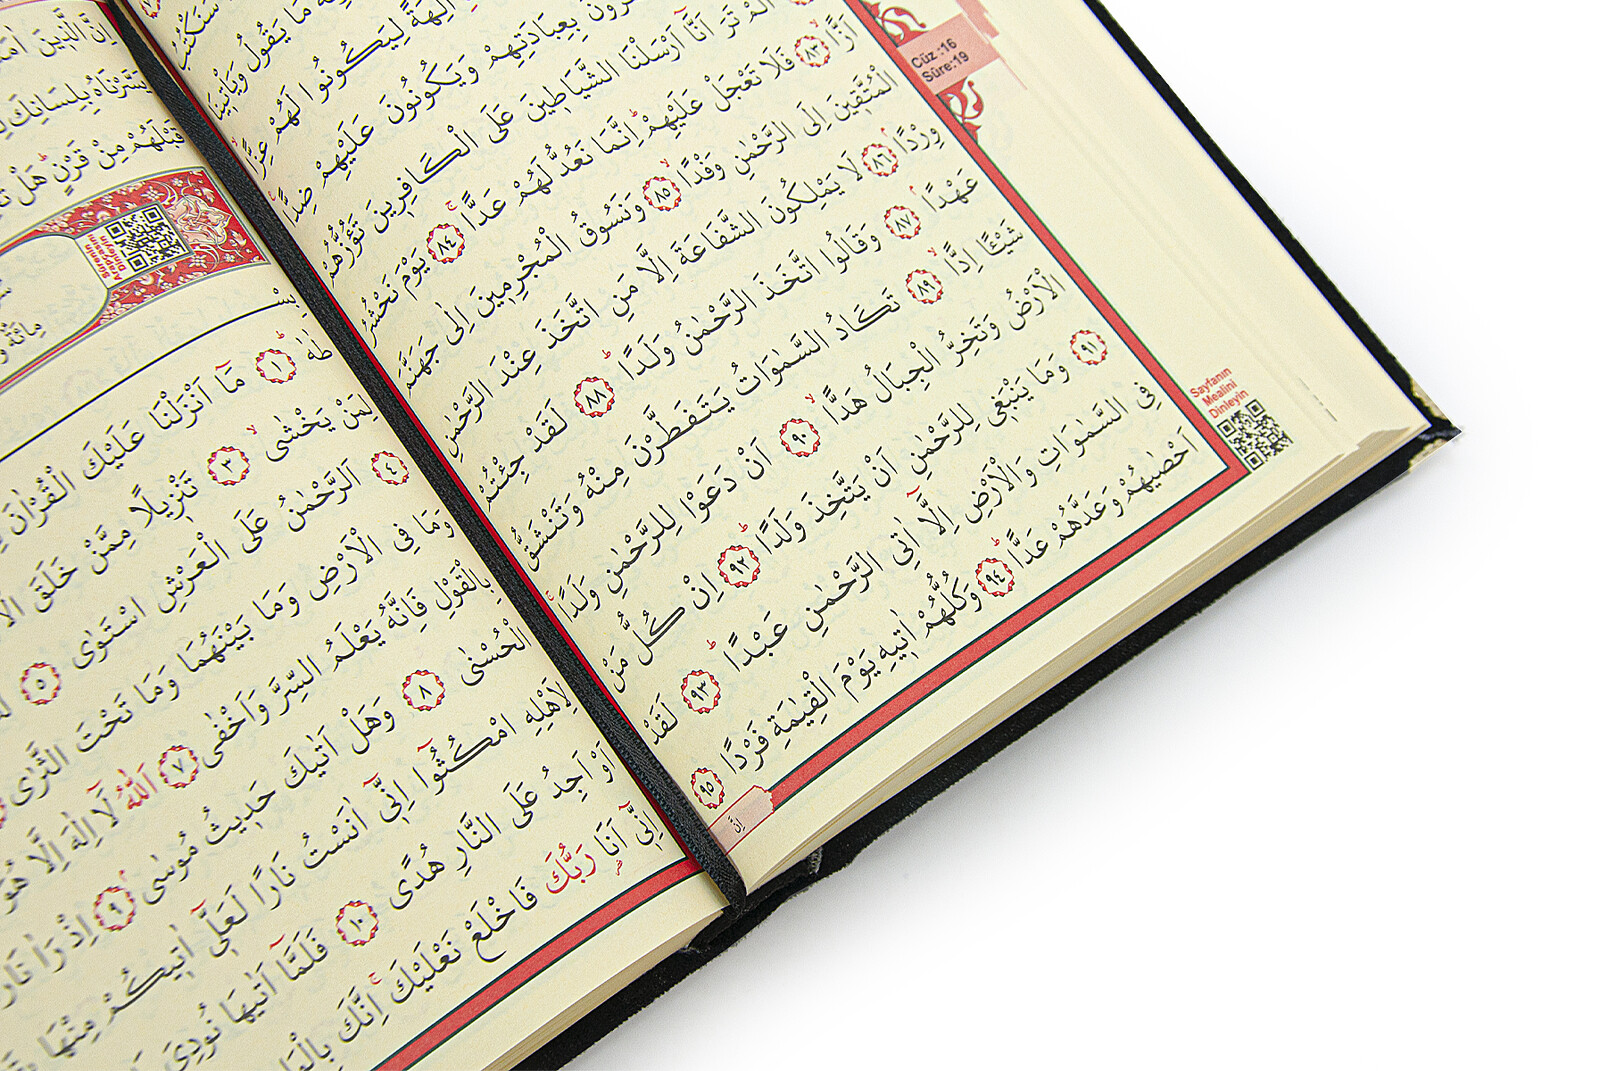 سَنَكْتُبُ
مَا يَقُولُ وَيَأْتِينَا
اٰلِهَةً لِيَكُونُوا لَهُمْ عِزًّا
بِعِبَادَتِهِمْ وَيَكُونُونَ عَلَيْهِمْ ضِدًّا
اَلَمْ تَرَ اَنَّٓا اَرْسَلْنَا الشَّيَاطٖينَ عَلَى الْكَافِرٖينَ تَؤُزُّهُمْ
اَزًّا ﴿٨٣﴾ فَلَا تَعْجَلْ عَلَيْهِمْ اِنَّمَا نَعُدُّ لَهُمْ عَدًّا ﴿٨٤﴾ يَوْمَ نَحْشُرُ
الْمُتَّقٖينَ اِلَى الرَّحْمٰنِ وَفْدًا ﴿٨٥﴾ وَنَسُوقُ الْمُجْرِمٖينَ اِلٰى جَهَنَّمَ
وِرْدًا ﴿٨٦﴾ لَا يَمْلِكُونَ الشَّفَاعَةَ اِلَّا مَنِ اتَّخَذَ عِنْدَ الرَّحْمٰنِ
عَهْدًا ﴿٨٧﴾ وَقَالُوا اتَّخَذَ الرَّحْمٰنُ وَلَدًا ﴿٨٨﴾ لَقَدْ جِئْتُمْ
شَيْئًا اِدًّا ﴿٨٩﴾ تَكَادُ السَّمٰوَاتُ يَتَفَطَّرْنَ مِنْهُ وَتَنْشَقُّ
الْاَرْضُ وَتَخِرُّ الْجِبَالُ هَدًّا ﴿٩٠﴾ اَنْ دَعَوْا لِلرَّحْمٰنِ وَلَدًا
﴿٩١﴾ وَمَا يَنْبَغٖى لِلرَّحْمٰنِ اَنْ يَتَّخِذَ وَلَدًا ﴿٩٢﴾ اِنْ كُلُّ مَنْ
فِى السَّمٰوَاتِ وَالْاَرْضِ اِلَّٓا اٰتِى الرَّحْمٰنِ عَبْدًا ﴿٩٣﴾ لَقَدْ
اَحْصٰيهُمْ وَعَدَّهُمْ عَدًّا ﴿٩٤﴾ وَكُلُّهُمْ اٰتٖيهِ يَوْمَ الْقِيٰمَةِ فَرْدًا ﴿٩٥﴾
اِنَّ
Cüz :16
Sûre:19
Sayfanın
Mealini
Dinleyin
اِنَّ الَّذٖينَ
يَسَّرْنَاهُ بِلِسَانِكَ
قَبْلَهُمْ مِنْ قَرْنٍ هَلْ
Sûrenin
Arapçasını
Dinleyin
طٰهٰ ﴿١﴾ مَٓا اَنْزَلْنَا عَلَيْكَ الْقُرْاٰنَ
لِمَنْ يَخْشٰى ﴿٣﴾ تَنْزٖيلًا مِمَّنْ خَلَقَ
﴿٤﴾ اَلرَّحْمٰنُ عَلَى الْعَرْشِ اسْتَوٰى ﴿٥﴾
وَمَا فِى الْاَرْضِ وَمَا بَيْنَهُمَا وَمَا تَحْتَ الثَّرٰى
بِالْقَوْلِ فَاِنَّهُ يَعْلَمُ السِّرَّ وَاَخْفٰى ﴿٧﴾ اَللّٰهُ لَٓا اِلٰهَ اِلَّا هُوَ
الْحُسْنٰى ﴿٨﴾ وَهَلْ اَتٰيكَ حَدٖيثُ مُوسٰى ﴿٩﴾ اِذْ رَاٰ نَارًا
لِاَهْلِهِ امْكُثُٓوا اِنّٖٓى اٰنَسْتُ نَارًا لَعَلّٖٓى اٰتٖيكُمْ مِنْهَا
اَوْ اَجِدُ عَلَى النَّارِ هُدًى ﴿١٠﴾ فَلَمَّٓا اَتٰيهَا نُودِىَ
اِنّٖٓى اَنَا رَبُّكَ فَاخْلَعْ نَعْلَيْكَ اِنَّكَ